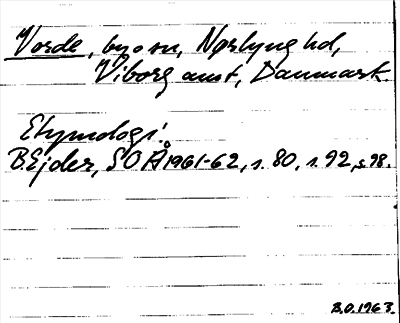 Vorde, by o sn, Nørlyng hd,
Viborg amt, Danmark
Etymologi:
B. Ejder, SOÅ 1961-62, s. 80, s. 92, s. 98.
B.O. 1963.